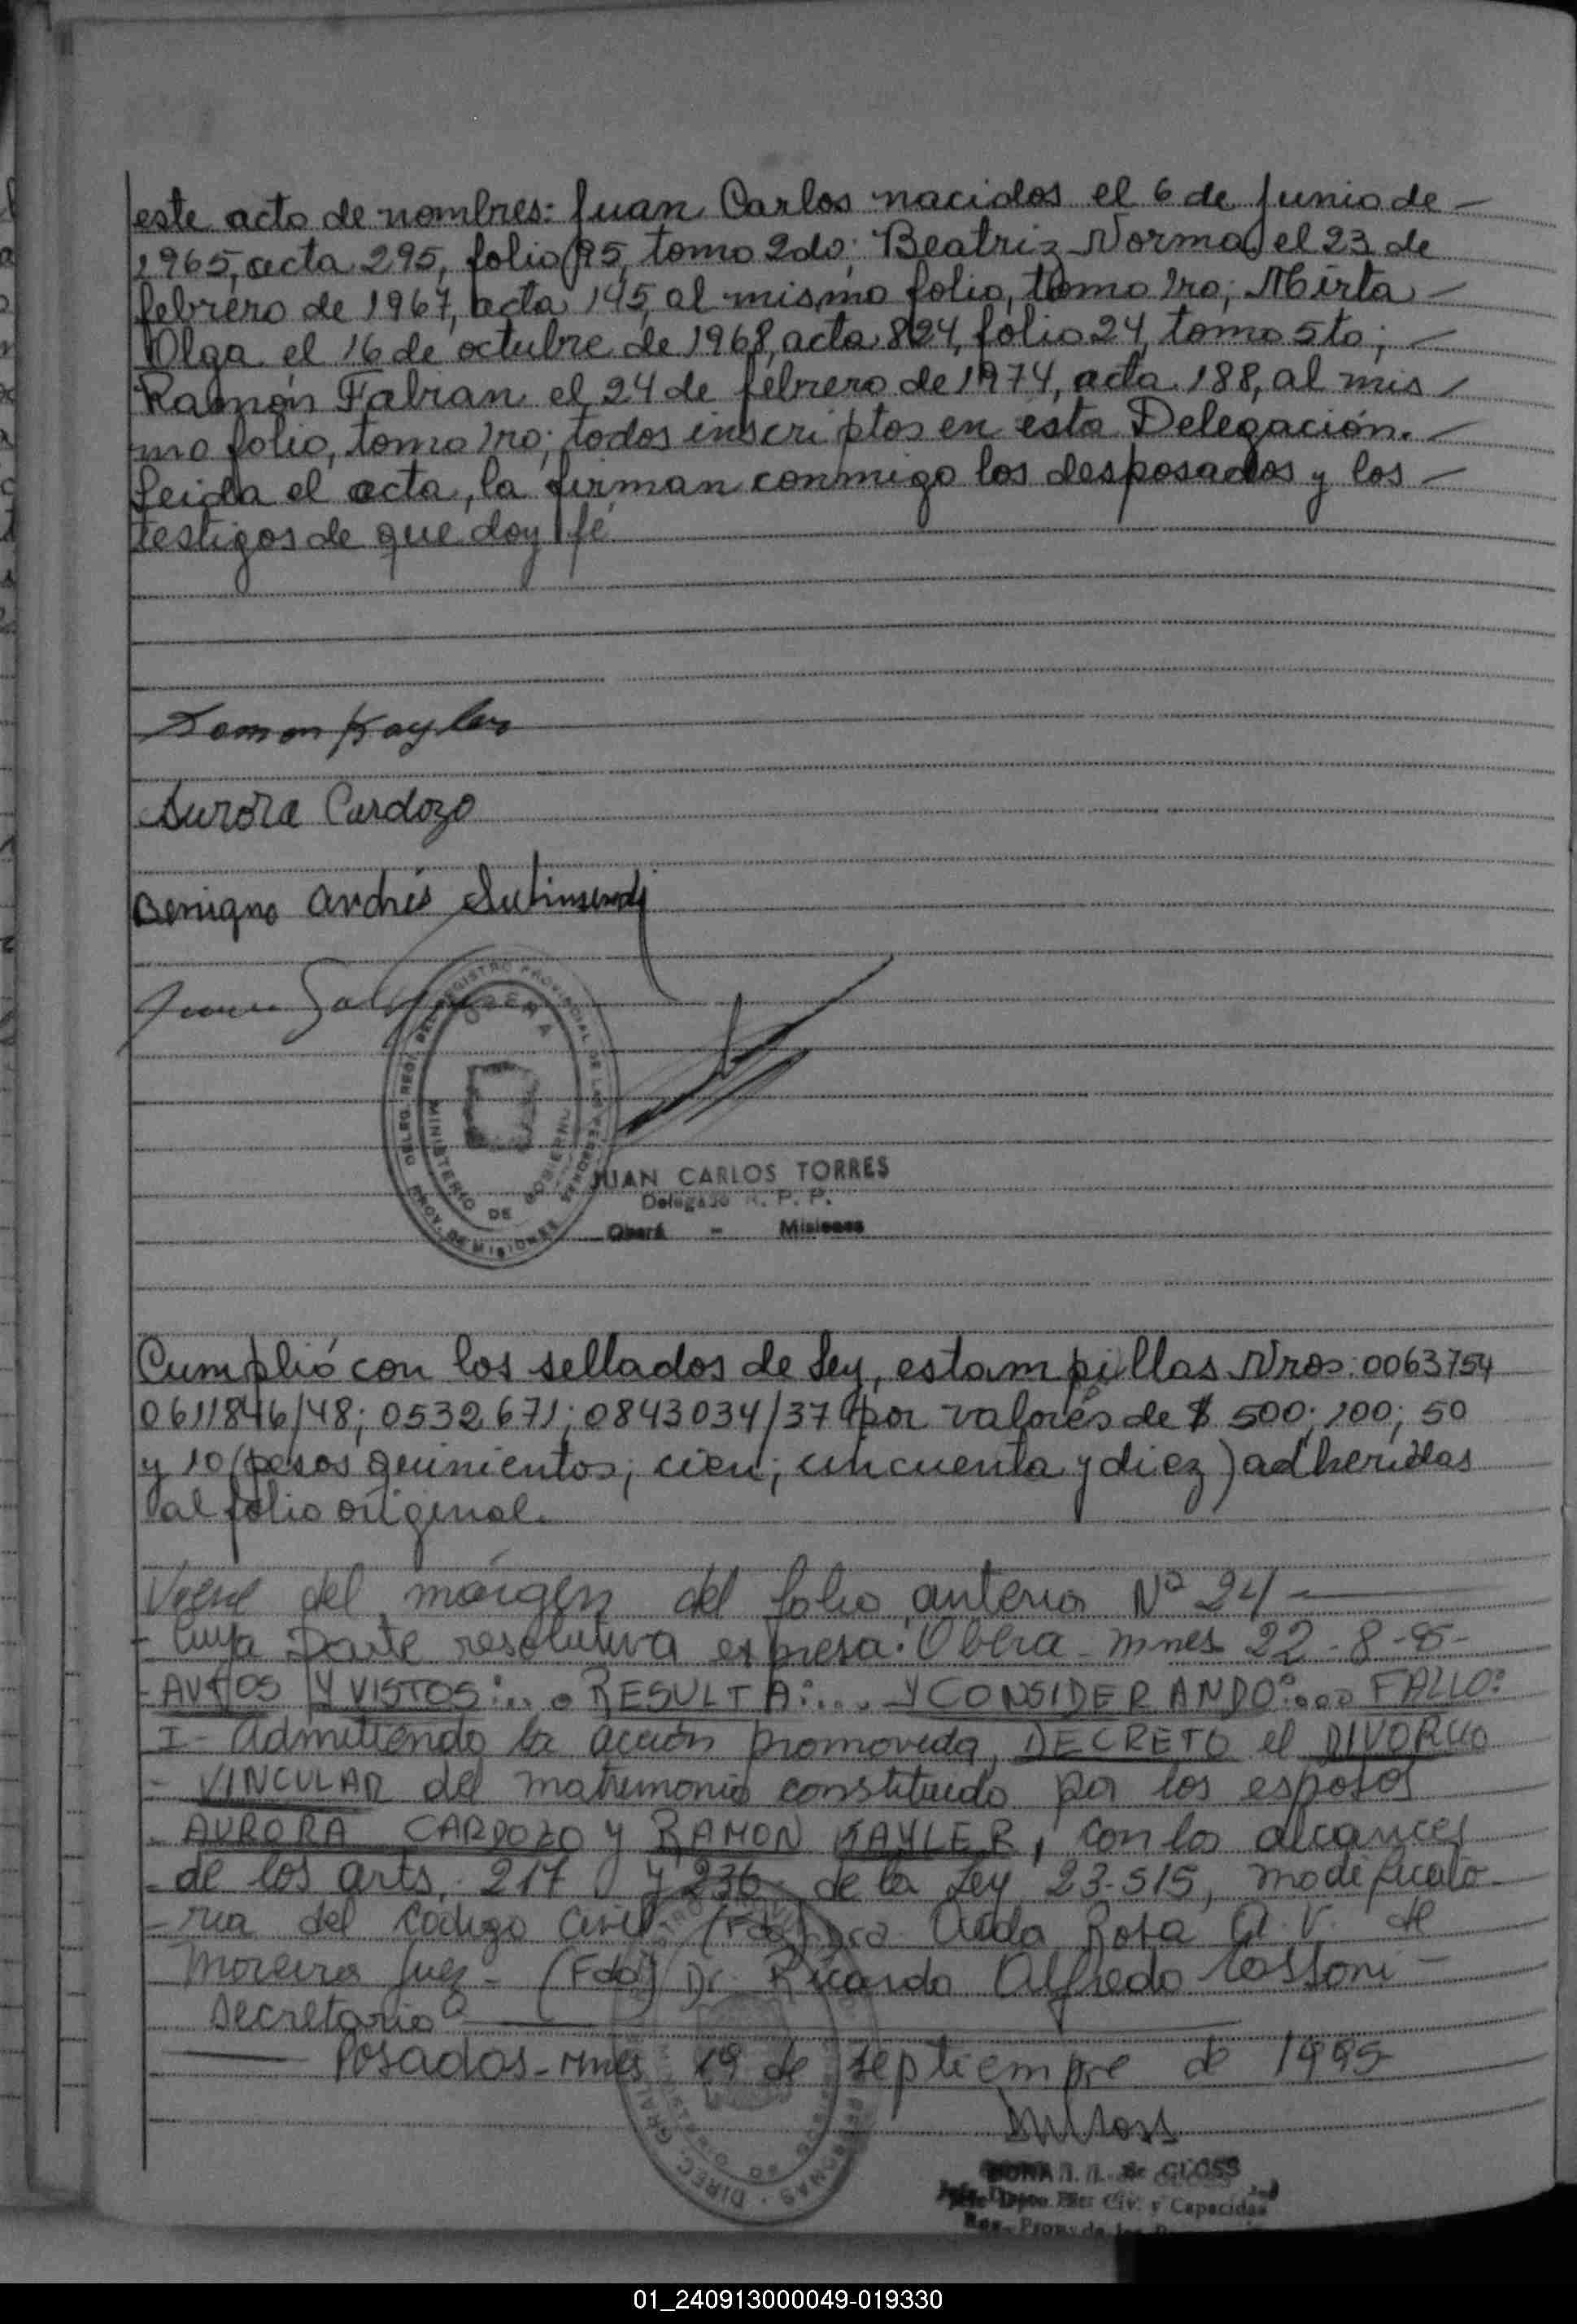 este acto de nombres: Juan Carlos nacidos el 6 de Junio de —
1965, acta 295, folio 95, tomo 2do; Beatriz Norma, el 23 de
febrero de 1967, acta 145, al mismo folio, tomo 1ro; Mirta —
Olga el 16 de octubre de 1968, acta 824, folio 24, tomo 5to; —
Ramón Fabian el 24 de febrero de 1974, acta 188, al mis —
mo folio, tomo 1ro; todos inscriptos en esta Delegación. —
Leida el acta, la firman conmigo los desposados y los —
testigos de que doy fé
Ramon Kayler
Aurora Cardozo
Benigno Andrés
REGISTRO PROVINCIAL DE LAS PERSONAS
OBERA
MINISTERIO DE GOBIERNO
PROV. DE MISIONES
JUAN CARLOS TORRES
Delegado R. P. P.
Oberá - Misiones
Cumplió con los sellados de Ley, estampillas Nros: 0063754
0611846/48; 0532671; 0843034/37 por valores de $ 500; 100; 50
y 10 (pesos quinientos; cien; cincuenta y diez) adheridas
al folio original.
Viene del márgen del folio anterior Nº 24 —
- Cuya Parte resolutiva expresa: Obera mnes 22-8-
- AUTOS Y VISTOS:... RESULTA:... Y CONSIDERANDO:... FALLO:
I- Admitiendo la acción promovida, DECRETO el DIVORCIO
- VINCULAR del matrimonio constituido por los esposos
- AURORA CARDOZO y RAMON KAYLER, con los alcances
- de los arts. 217 y 236 de la Ley 23.515, modificato-
- ria del Codigo Civil. (Fdo) Dra. Aida Rosa A. V. de
Moreira Juez - (Fdo) Dr. Ricardo Alfredo Cassoni —
Secretario —
— Posadas - mnes 19 de septiembre de 1995
de GLOSS
Civ. y Capacidad